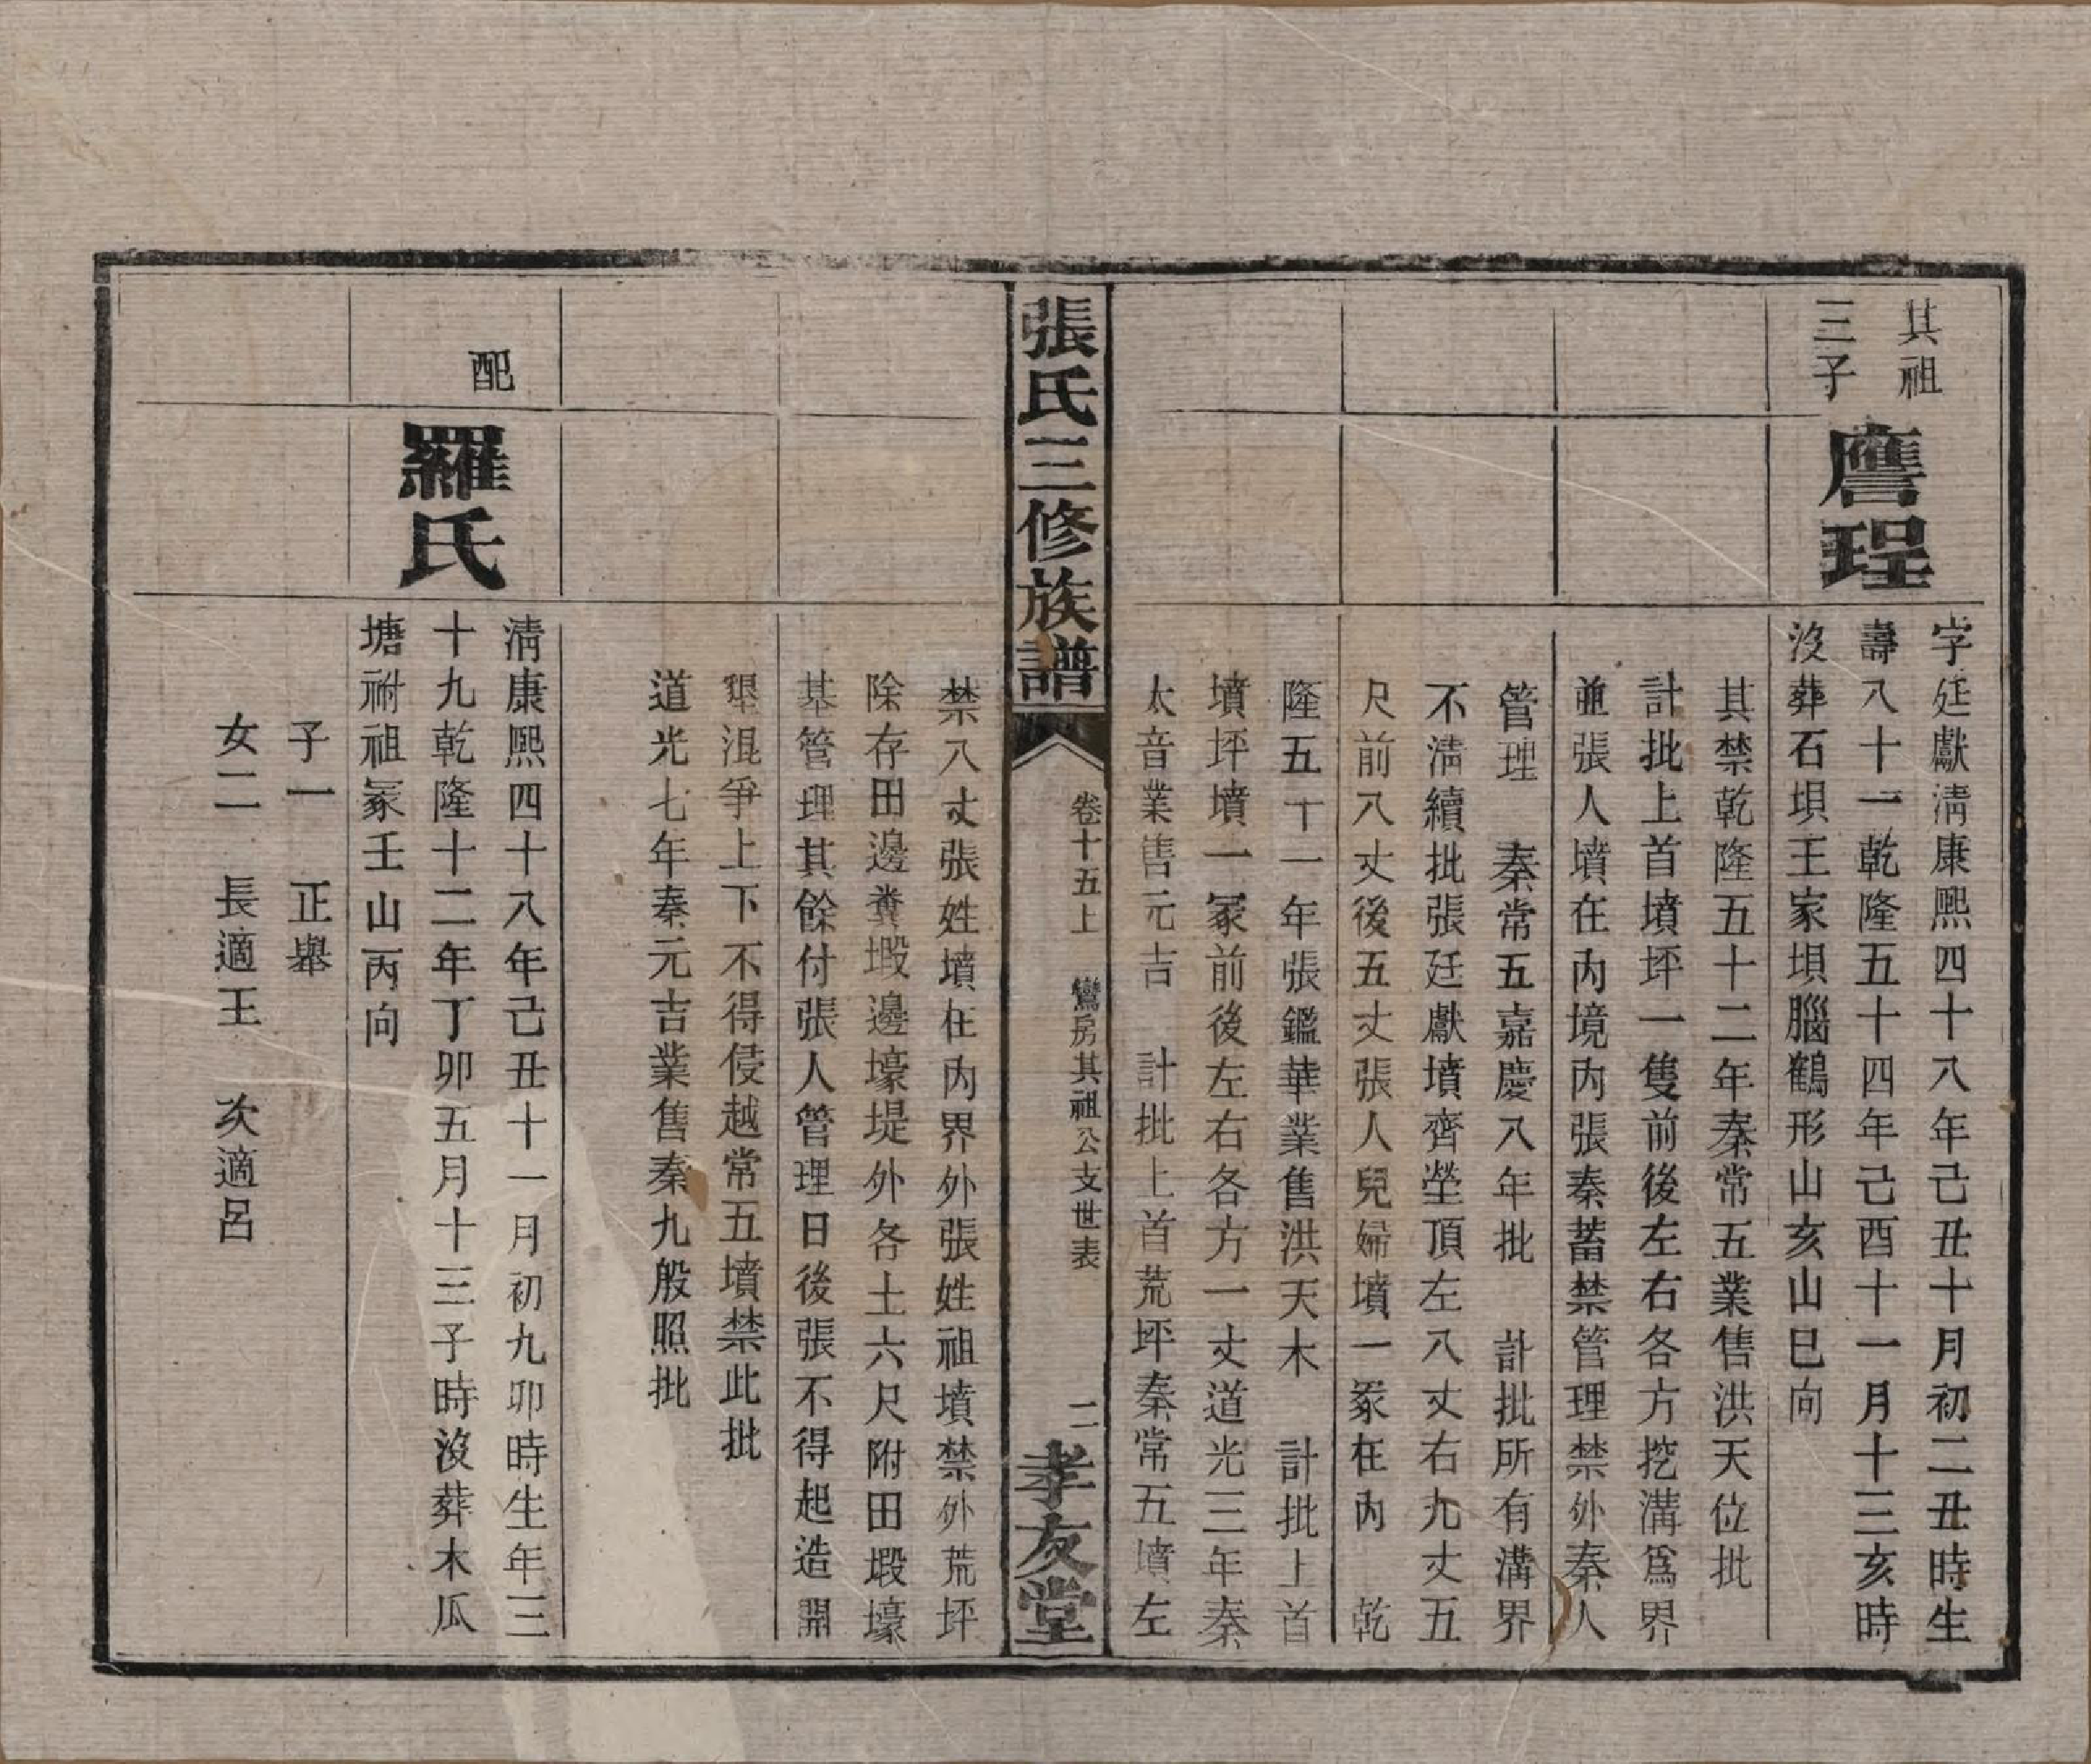 其祖
三子
鷹珵
字廷獻淸康熙四十八年己丑十月初二丑時生
壽八十一乾隆五十四年己酉十一月十三亥時
沒葬石垻王家垻腦鶴形山亥山巳向
其禁乾隆五十二年秦常五業售洪天位批
計批上首墳坪一隻前後左右各方挖溝爲界
並張人墳在內境內張秦蓄禁管理禁外秦人
管理　秦常五嘉慶八年批　計批所有溝界
不淸續批張廷獻墳齊塋頂左八丈右九丈五
尺前八丈後五丈張人兒婦墳一冢在內　乾
隆五十一年張鑑華業售洪天木　計批上首
墳坪墳一冢前後左右各方一丈道光三年秦
太音業售元吉　計批上首荒坪秦常五墳左
張氏三修族譜
卷十五上　鸞房其祖公支世表　二
孝友堂
禁八丈張姓墳在內界外張姓祖墳禁外荒坪
除存田邊糞塅邊壕堤外各土六尺附田塅壕
基管理其餘付張人管理日後張不得起造開
墾混爭上下不得侵越常五墳禁此批
道光七年秦元吉業售秦九般照批
配
羅氏
淸康熙四十八年己丑十一月初九卯時生年三
十九乾隆十二年丁卯五月十三子時沒葬木瓜
塘祔祖冢壬山丙向
子一　正舉
女二　長適王　次適呂